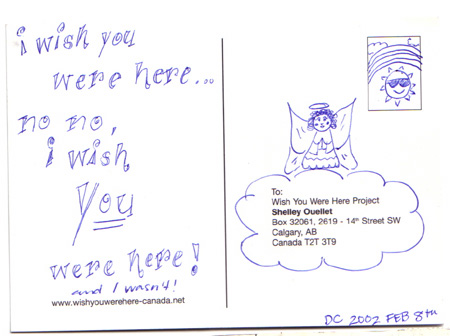 i wish you
were here...
no no,
i wish
You
were here!
and I wasn't!
www.wishyouwerehere-canada.net
To:
Wish You Were Here Project
Shelley Ouellet
Box 32061, 2619 - 14th Street SW
Calgary, AB
Canada T2T 3T9
DC 2002 FEB 8TH